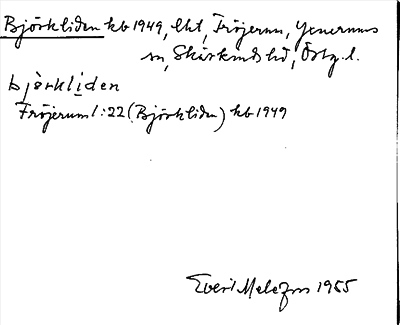 Björkliden kb 1949, lht, Fröjerum, Yxnerums
sn, Skärkinds hd, Östg. l.
björkliden
Fröjerum 1:22 (Björkliden) kb 1949
Evert Melefors 1955